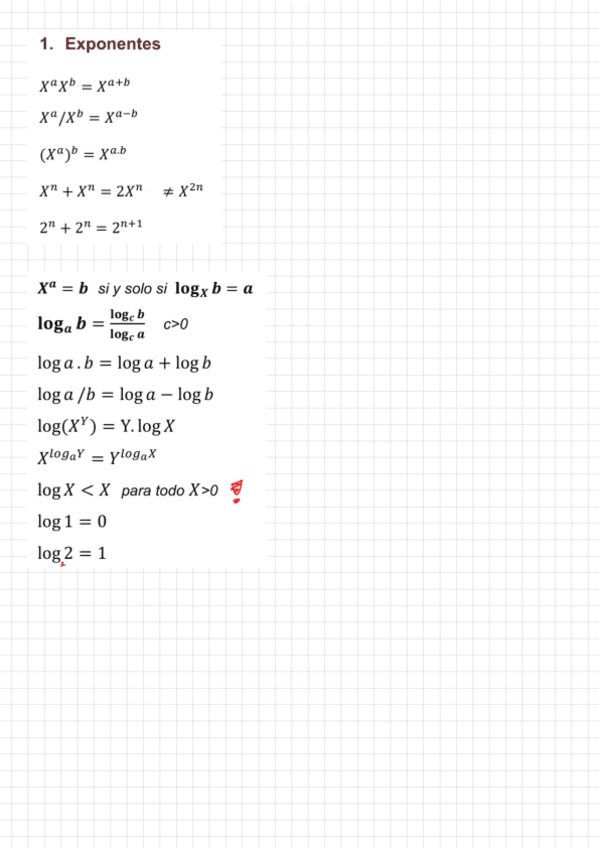 1. Exponentes
XᵃXᵇ = Xᵃ⁺ᵇ
Xᵃ/Xᵇ = Xᵃ⁻ᵇ
(Xᵃ)ᵇ = Xᵃ·ᵇ
Xⁿ + Xⁿ = 2Xⁿ ≠ X²ⁿ
2ⁿ + 2ⁿ = 2ⁿ⁺¹
Xᵃ = b si y solo si log_X b = a
log_a b = log_c b / log_c a c>0
log a . b = log a + log b
log a /b = log a − log b
log(X^Y) = Y. log X
X^(log_a Y) = Y^(log_a X)
log X < X para todo X>0 !
log 1 = 0
log₂ 2 = 1